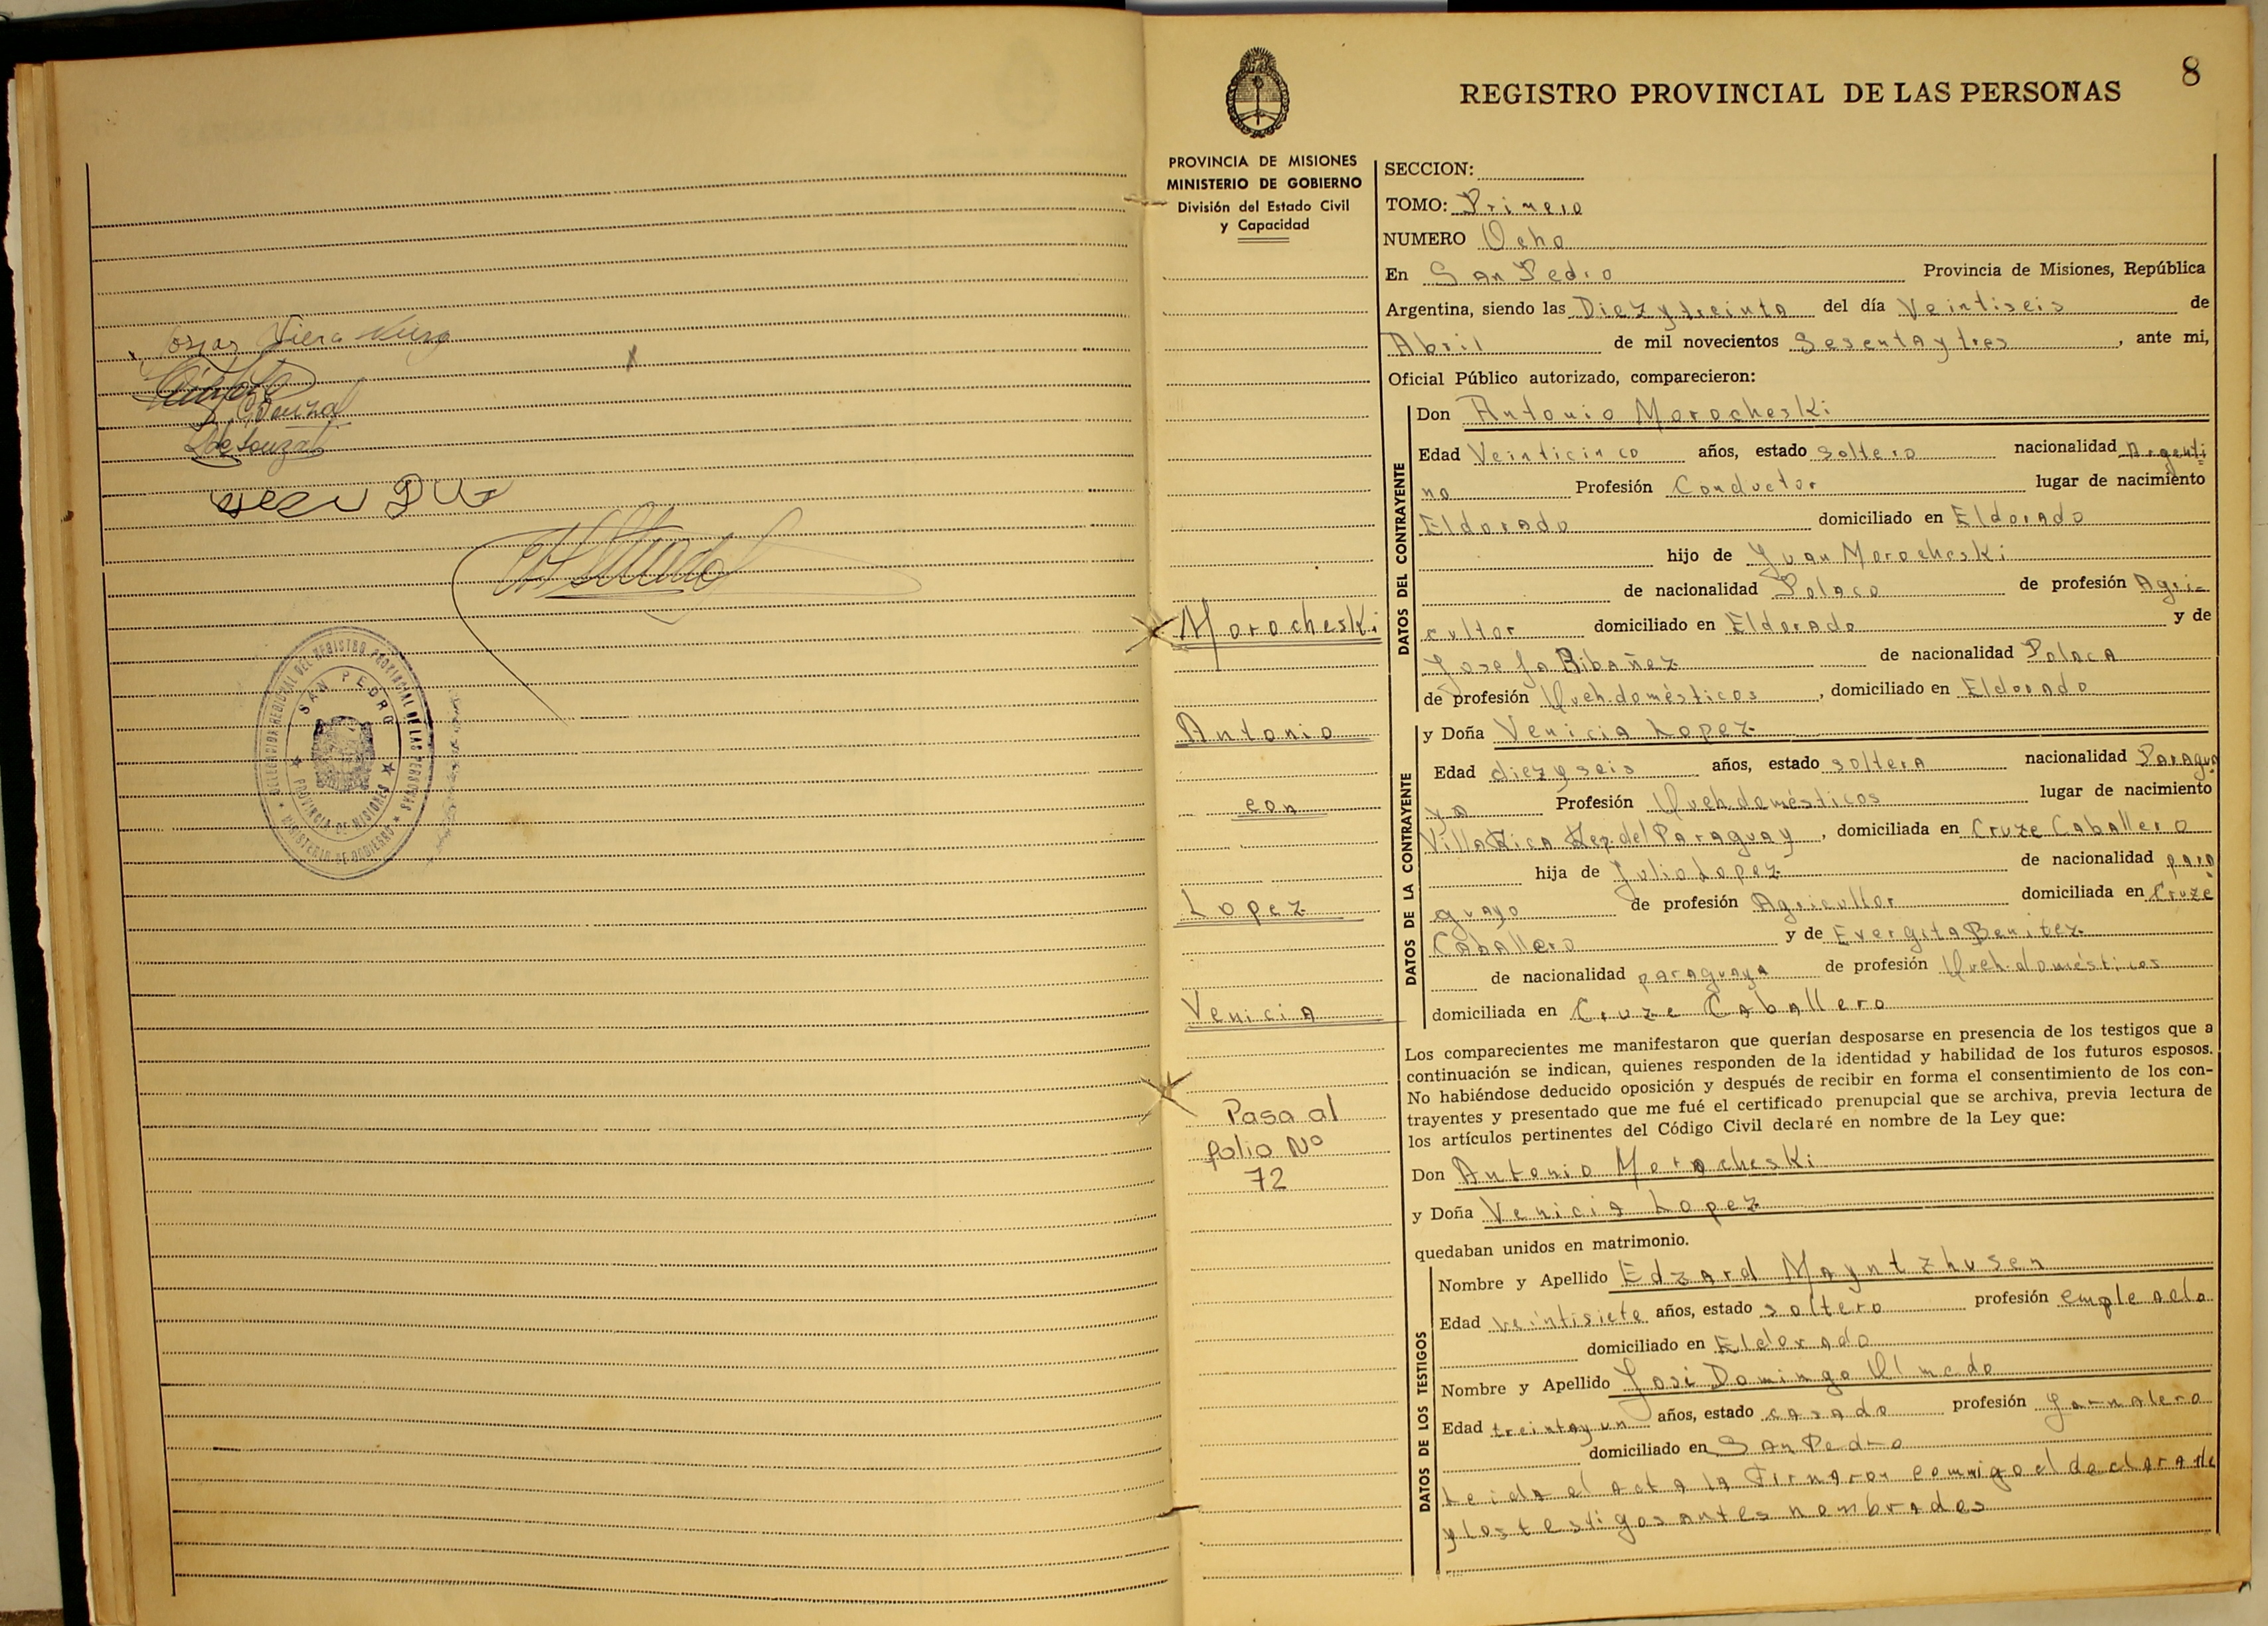 SAN PEDRO
PROVINCIA DE MISIONES
MINISTERIO DE GOBIERNO
8
REGISTRO PROVINCIAL DE LAS PERSONAS
PROVINCIA DE MISIONES
MINISTERIO DE GOBIERNO
División del Estado Civil
y Capacidad
Morocheski
Antonio
con
Lopez
Venicia
Pasa al
folio Nº
72
SECCION:
TOMO: Primero
NUMERO Ocho
En San Pedro Provincia de Misiones, República
Argentina, siendo las Diez y treinta del día Veintiseis de
Abril de mil novecientos Sesenta y tres, ante mi,
Oficial Público autorizado, comparecieron:
DATOS DEL CONTRAYENTE
Don Antonio Morocheski
Edad Veinticinco años, estado soltero nacionalidad Argenti
no Profesión Conductor lugar de nacimiento
Eldorado domiciliado en Eldorado
hijo de Juan Morocheski
de nacionalidad Polaco de profesión Agri-
cultor domiciliado en Eldorado y de
Josefa Ribañez de nacionalidad Polaca
de profesión Queh. domésticos, domiciliado en Eldorado
DATOS DE LA CONTRAYENTE
y Doña Venicia Lopez
Edad diez y seis años, estado soltera nacionalidad Paragua
ya Profesión Queh. domésticos lugar de nacimiento
Villa Rica Rep. del Paraguay, domiciliada en Cruze Caballero
hija de Julio Lopez de nacionalidad para
guayo de profesión Agricultor domiciliada en Cruze
Caballero y de Evergita Benitez
de nacionalidad paraguaya de profesión Queh. domésticos
domiciliada en Cruze Caballero
Los comparecientes me manifestaron que querían desposarse en presencia de los testigos que a
continuación se indican, quienes responden de la identidad y habilidad de los futuros esposos.
No habiéndose deducido oposición y después de recibir en forma el consentimiento de los con-
trayentes y presentado que me fué el certificado prenupcial que se archiva, previa lectura de
los artículos pertinentes del Código Civil declaré en nombre de la Ley que:
Don Antonio Morocheski
y Doña Venicia Lopez
quedaban unidos en matrimonio.
DATOS DE LOS TESTIGOS
Nombre y Apellido Edzard Mayntzhusen
Edad veintisiete años, estado soltero profesión empleado
domiciliado en Eldorado
Nombre y Apellido José Domingo Olmedo
Edad treinta y un años, estado casado profesión Jornalero
domiciliado en San Pedro
Leida el acta la Firmaron conmigo el declarante
y los testigos antes nombrados